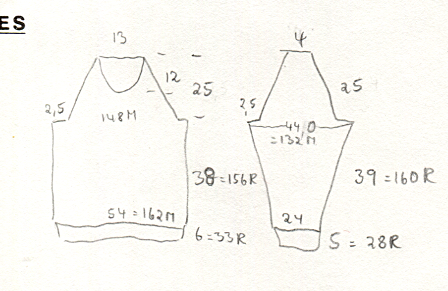 ES
13
12
25
2,5
148M
38=156R
54=162M
6=33R
4
25
25
44,0
=132M
39=160R
24
5=28R